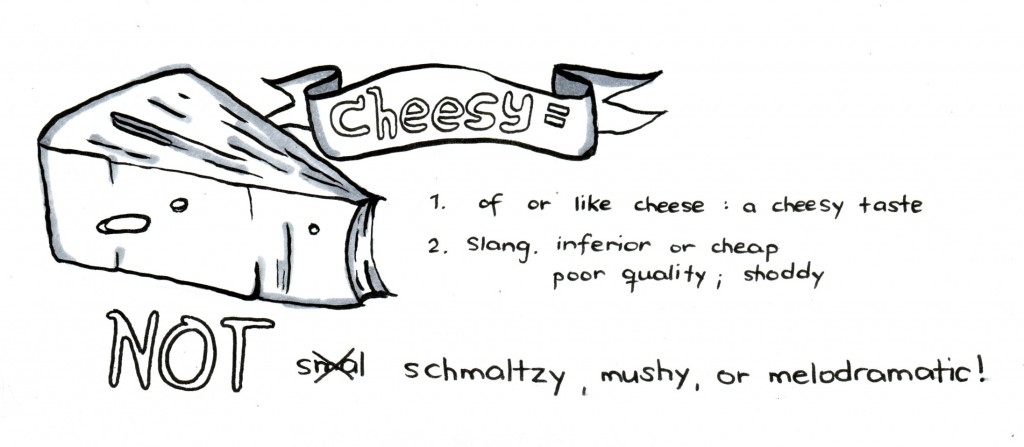 cheesy =
1. of or like cheese : a cheesy taste
2. Slang. inferior or cheap
poor quality ; shoddy
NOT smal schmaltzy, mushy, or melodramatic!